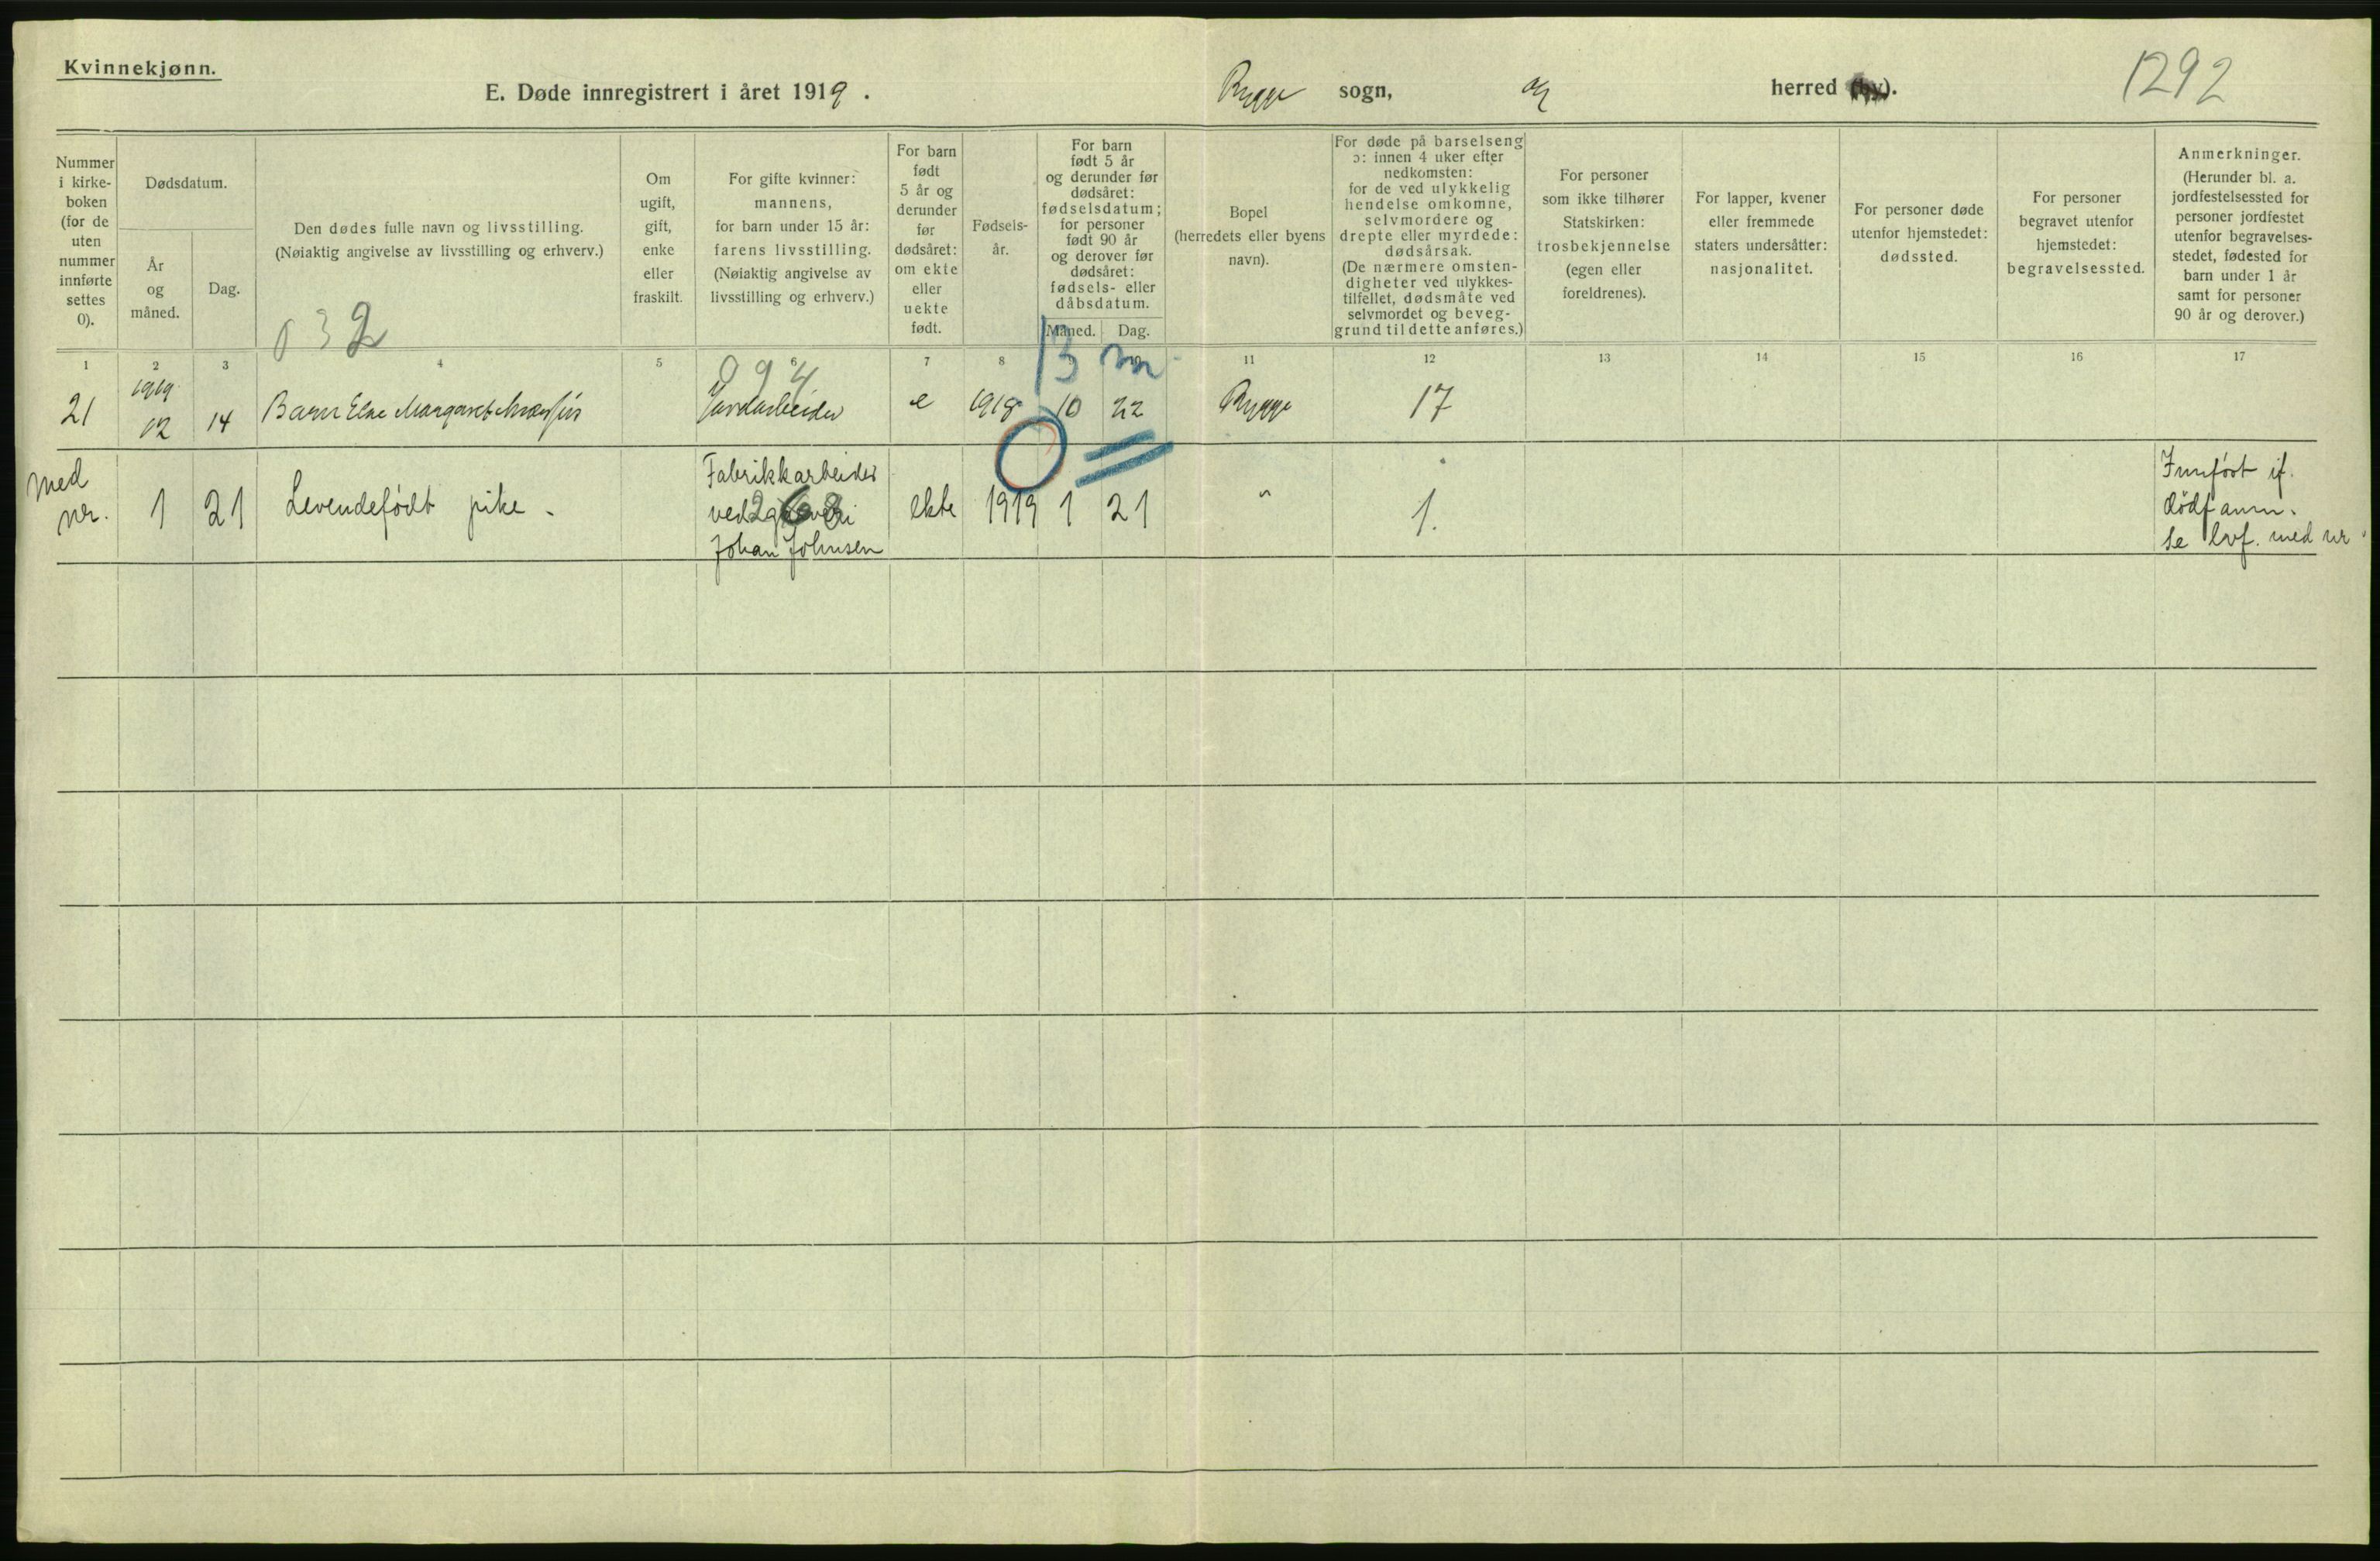 Kvinnekjønn.
E. Døde innregistrert i året 1919.
Rygge sogn,
herred (by).
1292
Nummer
i kirke-
boken
(for de
uten
nummer
innførte
settes
0).
Dødsdatum.
År
og
måned.
Dag.
Den dødes fulle navn og livsstilling.
(Nøiaktig angivelse av livsstilling og erhverv.)
032
Om
ugift,
gift,
enke
eller
fraskilt.
For gifte kvinner:
mannens,
for barn under 15 år:
farens livsstilling.
(Nøiaktig angivelse av
livsstilling og erhverv.)
For barn
født
5 år og
derunder
før
dødsåret:
om ekte
eller
uekte
født.
Fødsels-
år.
For barn
født 5 år
og derunder før
dødsåret:
fødselsdatum;
for personer
født 90 år
og derover før
dødsåret:
fødsels- eller
dåbsdatum.
Måned. Dag.
Bopel
(herredets eller byens
navn).
For døde på barselseng
ɔ: innen 4 uker efter
nedkomsten:
for de ved ulykkelig
hendelse omkomne,
selvmordere og
drepte eller myrdede:
dødsårsak.
(De nærmere omsten-
digheter ved ulykkes-
tilfellet, dødsmåte ved
selvmordet og beveg-
grund til dette anføres.)
For personer
som ikke tilhører
Statskirken:
trosbekjennelse
(egen eller
foreldrenes).
For lapper, kvener
eller fremmede
staters undersåtter:
nasjonalitet.
For personer døde
utenfor hjemstedet:
dødssted.
For personer
begravet utenfor
hjemstedet:
begravelsessted.
Anmerkninger.
(Herunder bl. a.
jordfestelsessted for
personer jordfestet
utenfor begravelses-
stedet, fødested for
barn under 1 år
samt for personer
90 år og derover.)
1 2 3 4 5 6 7 8 11 12 13 14 15 16 17
994
13 m
1919
21 12 14 Barn Else Margaret e 1918 10 22 Rygge 17
med
nr. 1 21 Levendefødt pike -
Fabrikkarbeider
ved
Johan Johnsen
268
ekte 1919 1 21 " 1.
Innført if.
dødfanm.
Se lvf. med nr